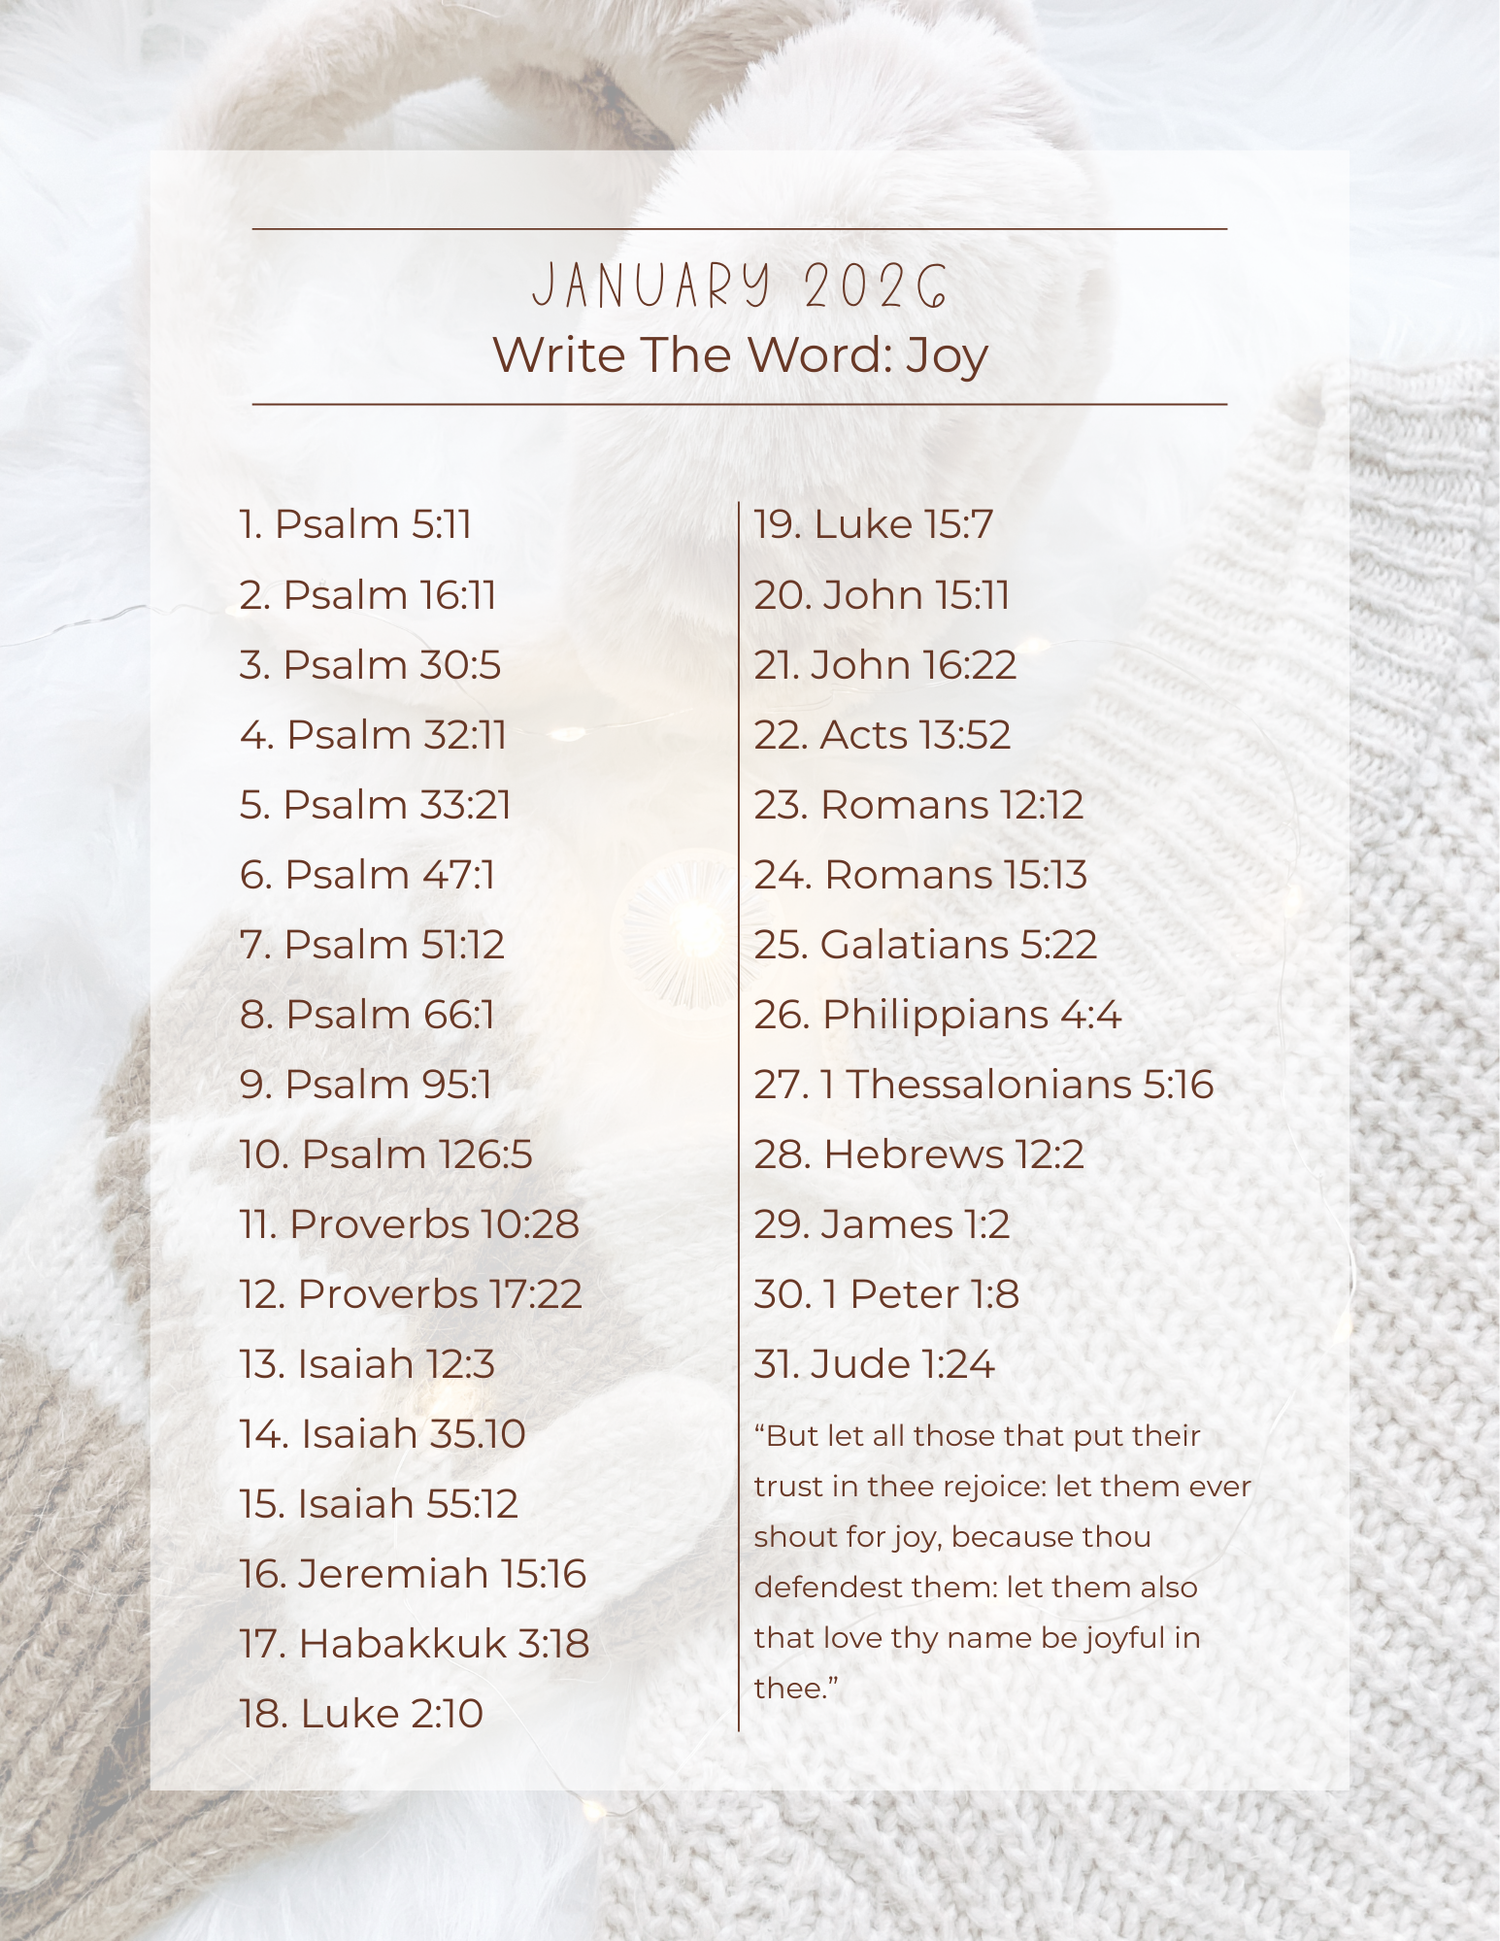 JANUARY 2026
Write The Word: Joy
1. Psalm 5:11
2. Psalm 16:11
3. Psalm 30:5
4. Psalm 32:11
5. Psalm 33:21
6. Psalm 47:1
7. Psalm 51:12
8. Psalm 66:1
9. Psalm 95:1
10. Psalm 126:5
11. Proverbs 10:28
12. Proverbs 17:22
13. Isaiah 12:3
14. Isaiah 35.10
15. Isaiah 55:12
16. Jeremiah 15:16
17. Habakkuk 3:18
18. Luke 2:10
19. Luke 15:7
20. John 15:11
21. John 16:22
22. Acts 13:52
23. Romans 12:12
24. Romans 15:13
25. Galatians 5:22
26. Philippians 4:4
27. 1 Thessalonians 5:16
28. Hebrews 12:2
29. James 1:2
30. 1 Peter 1:8
31. Jude 1:24
“But let all those that put their
trust in thee rejoice: let them ever
shout for joy, because thou
defendest them: let them also
that love thy name be joyful in
thee.”